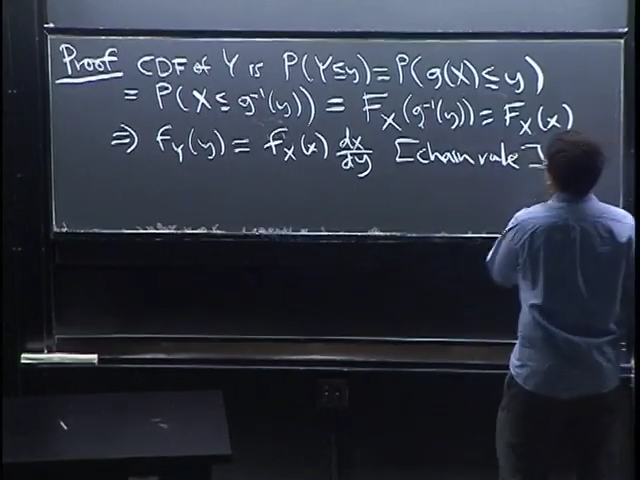 Proof CDF of Y is P(Y≤y) = P(g(X) ≤ y)
= P(X ≤ g⁻¹(y)) = F_X(g⁻¹(y)) = F_X(x)
⇒ f_Y(y) = f_X(x) dx/dy [chain rule]